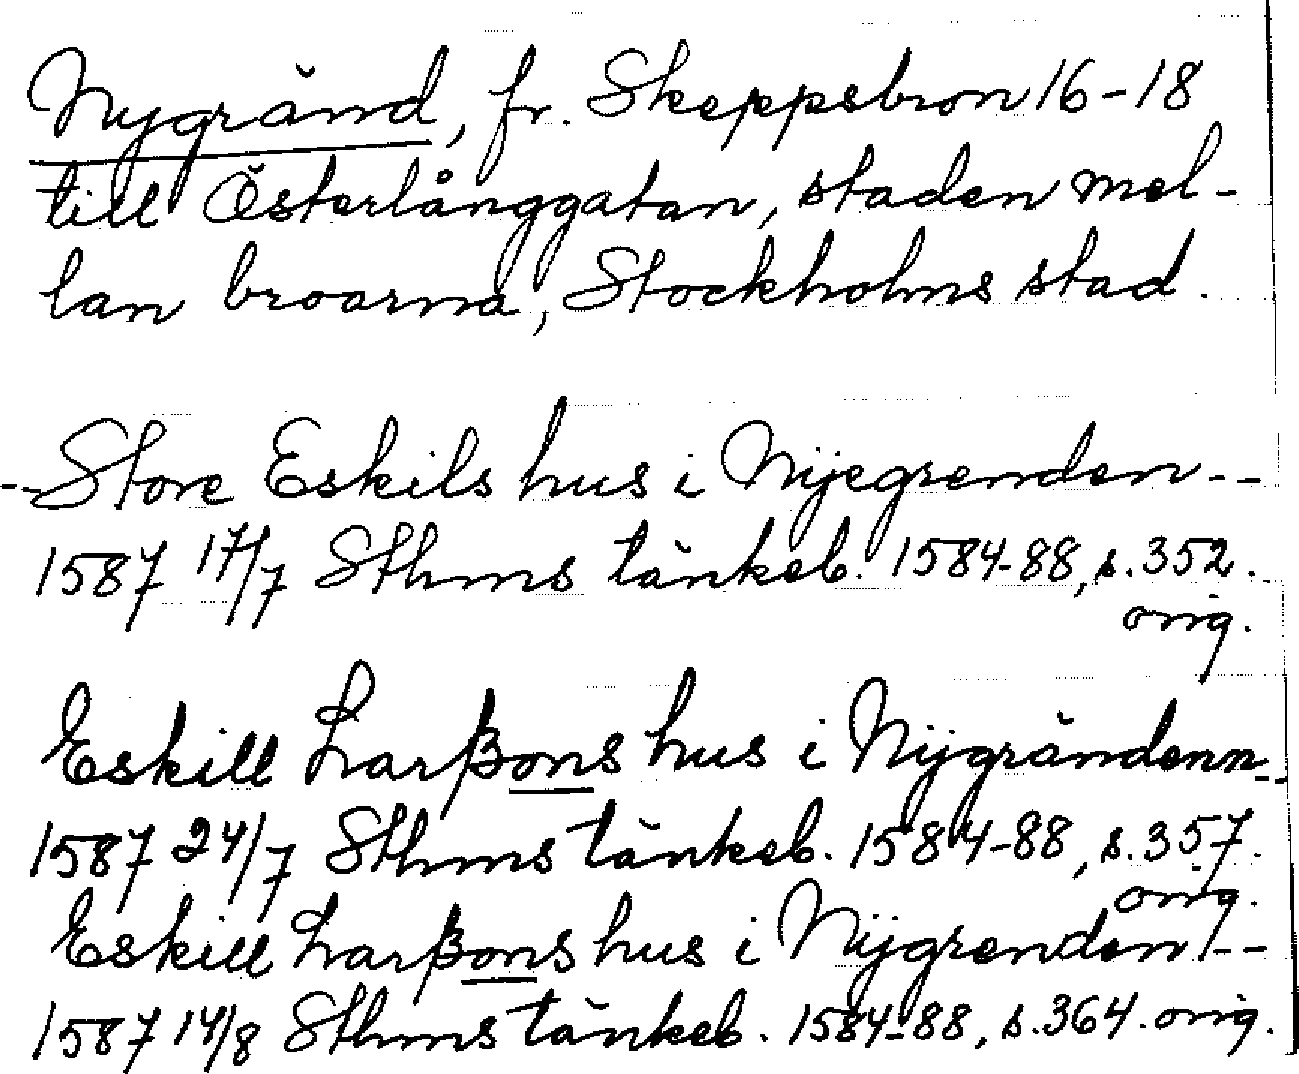 Nygränd, fr. Skeppsbron 16-18
till Österlånggatan, staden mel-
lan broarna, Stockholms stad.
--Store Eskils hus i Nijegrenden--
1587 17/7 Sthms tänkeb. 1584-88, s.352.
orig.
Eskill Larßons hus i Nijgrändenn--
1587 24/7 Sthms tänkeb. 1584-88, s.357.
orig.
Eskill Larßons hus i Nijgrenden--
1587 14/8 Sthms tänkeb. 1584-88, s.364. orig.